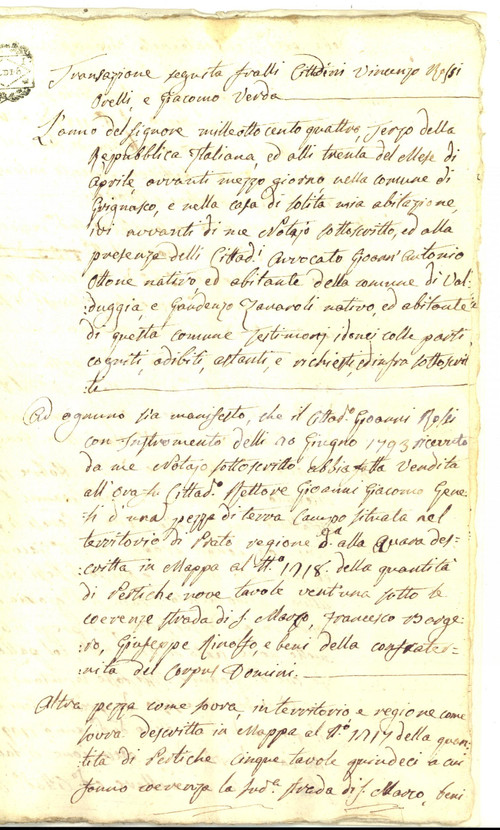 Transazione seguita fralli Cittadini Vincenzo Rossi
Orelli, e Giacomo Verda
L'anno del Signore mille otto cento quattro, Terzo della
Repubblica Italiana, ed alli trenta del Mese di
Aprile, avvanti mezzo giorno, nella comune di
Grignasco, e nella casa di solita mia abitazione,
ivi avvanti di me Notajo sottoscritto, ed alla
presenza delli Cittad.i Avvocato Gioanni Antonio
Ottone nativo, ed abitante della comune di Val-
:duggia, e Gaudenzo Zavaroli nativo, ed abitante
di questa comune Testimonj idonei colle parti
cogniti, adibiti, astanti, e richiesti, ed infra sottoscrit-
:ti
Ad ognuno sia manifesto, che il Cittad.o Gioanni Rossi
con Instromento delli Giugno 1793 ricevuto
da me Notajo sottoscritto abbia fatta vendita
all'ora fu Cittad.o Rettore Gioanni Giacomo Gene-
:si d'una pezza di terra Campo situata nel
territorio di Prato regione d.a alla Quara des-
:critta in Mappa al N.o 1718 della quantità
di Pertiche nove tavole vent'una sotto le
coerenze strada di S. Marco, Francesco Badge-
:ro, Giuseppe Rinolfo, e beni della confrater-
:nita del Corpus Domini.
Altra pezza come sovra, in territorio, e regione come
sovra descritta in Mappa al N.o 1717 della quan-
:tità di Pertiche cinque tavole quindeci a cui
fanno coerenza la sud.a strada di S. Marco, beni